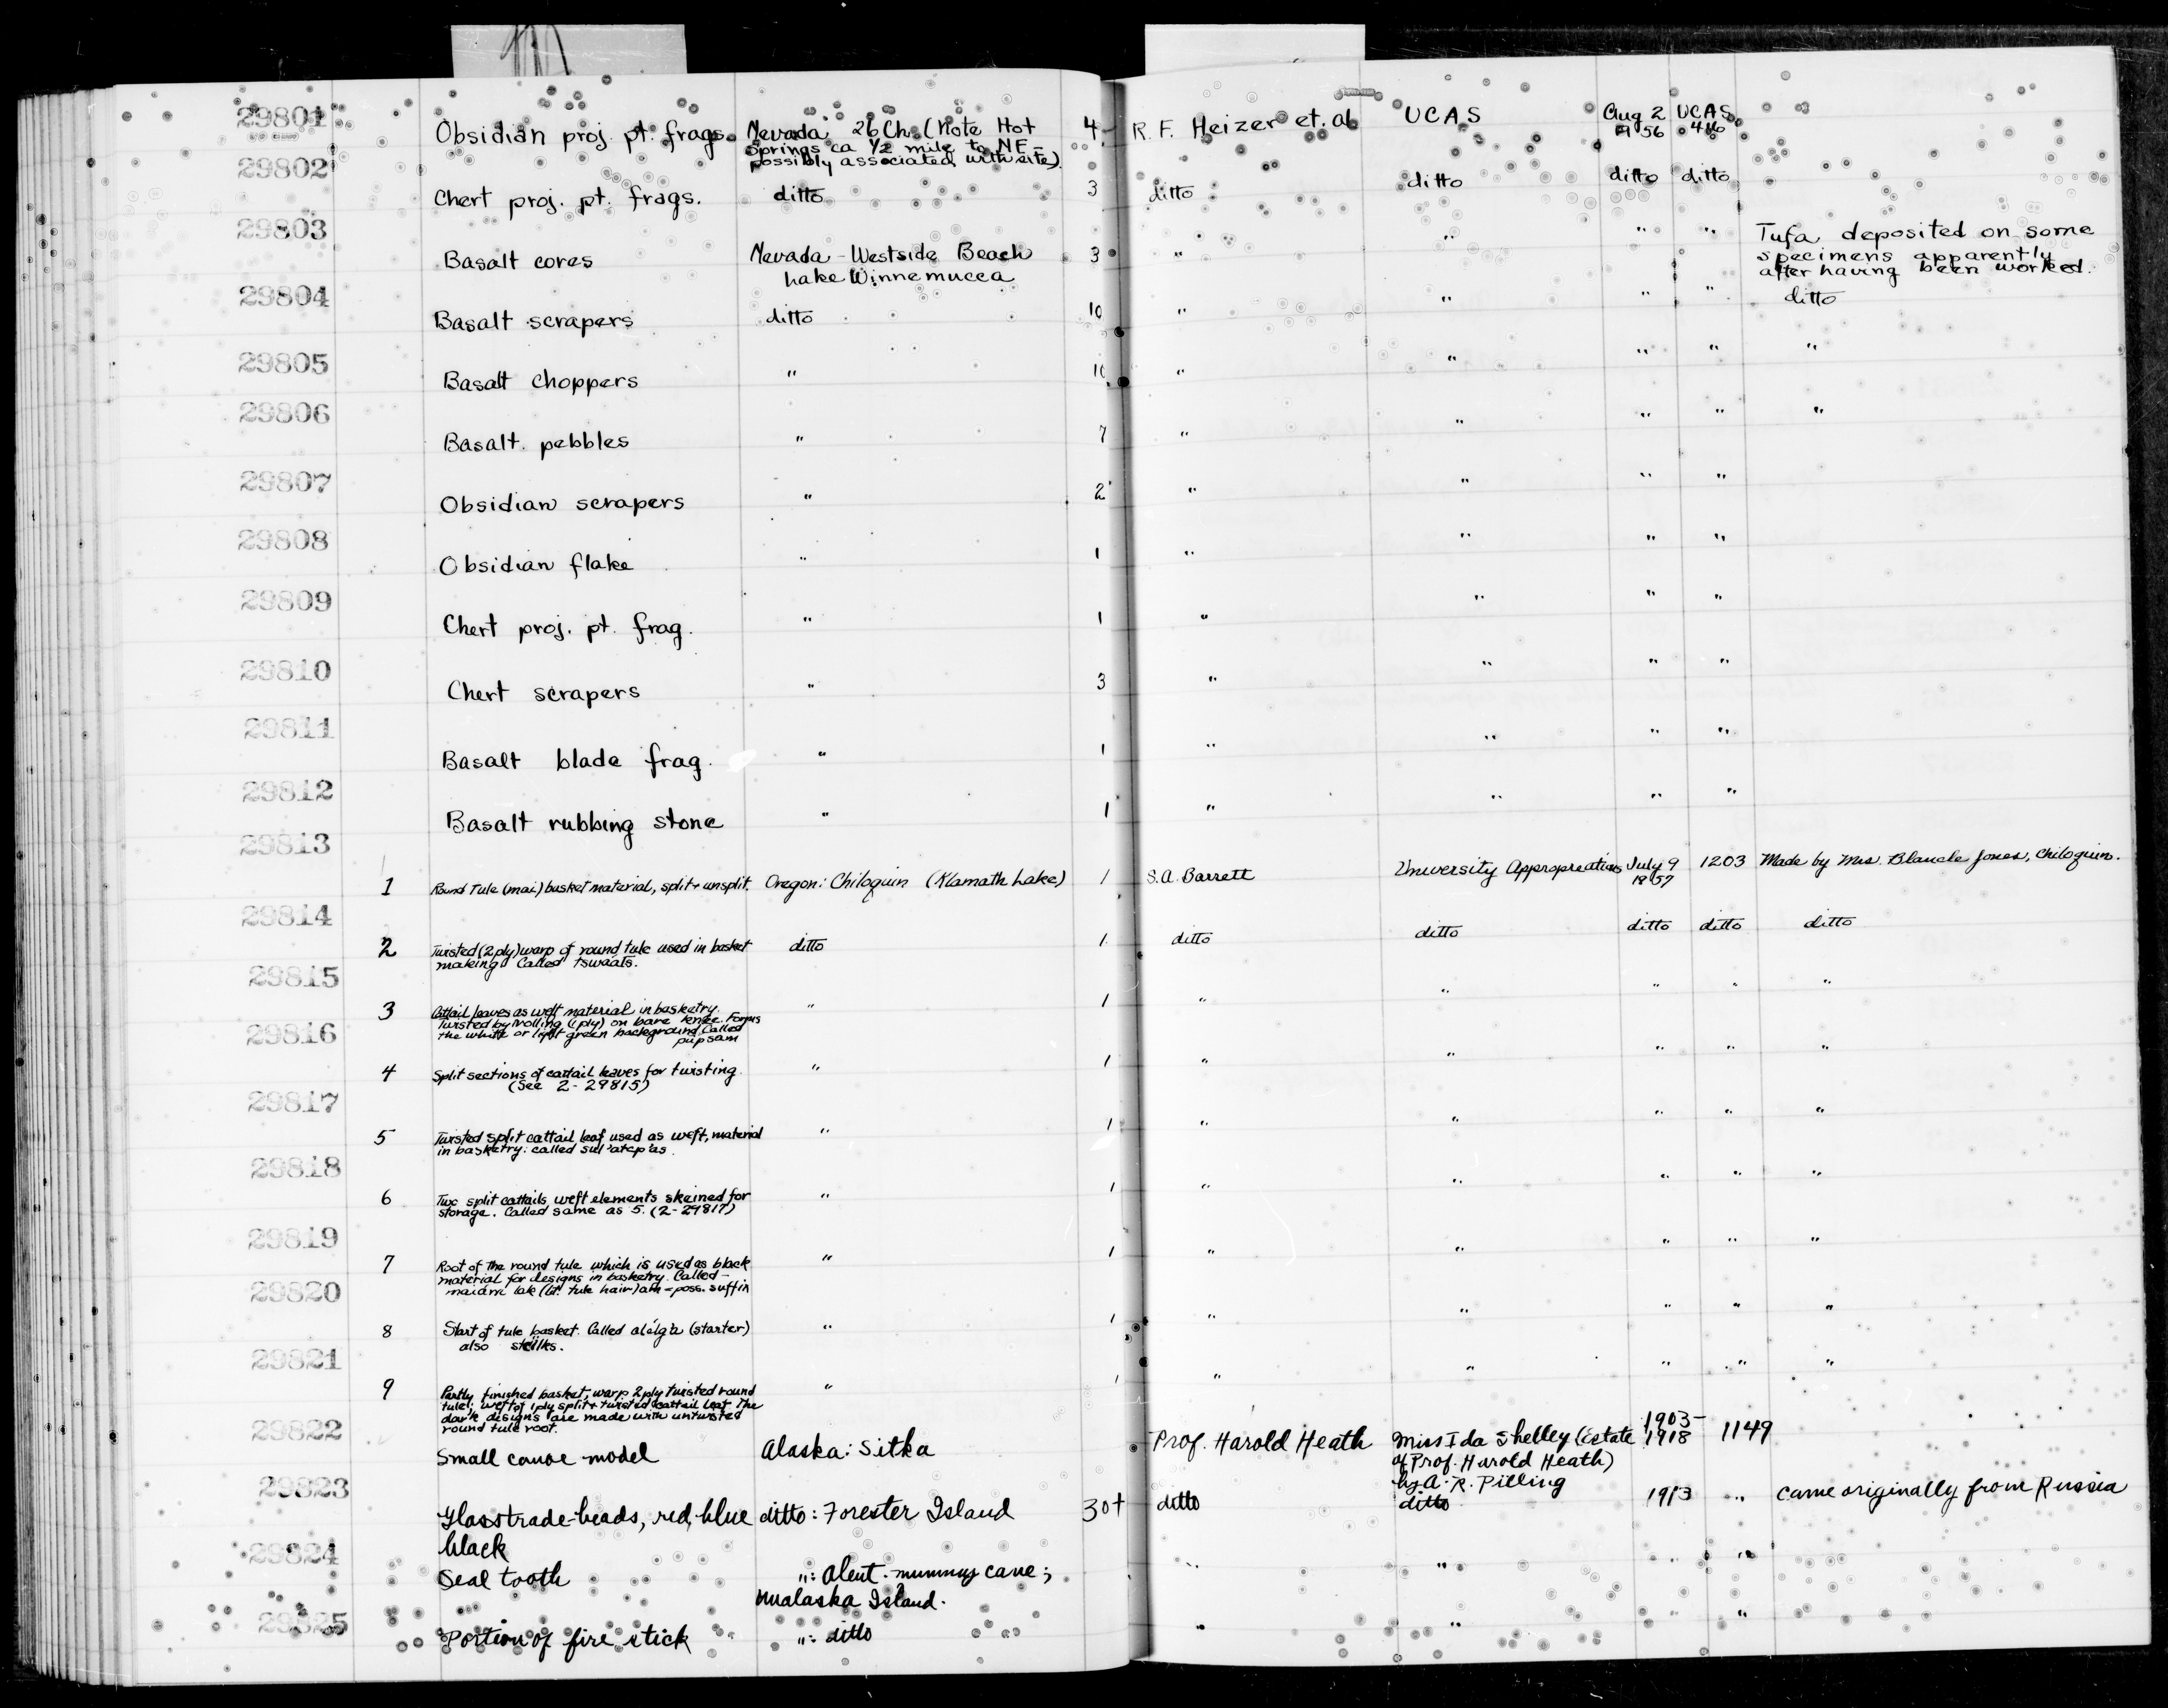 29801 Obsidian proj. pt. frags. Nevada 26 Ch. (Note Hot 4 R. F. Heizer et. al UCAS Aug 2 UCAS
Springs ca 1/2 mile to NE - 56
possibly associated with site)
29802 Chert proj. pt. frags. ditto 3 ditto ditto ditto ditto
29803 Basalt cores Nevada - Westside Beach 3 " " " " Tufa deposited on some
Lake Winnemucca specimens apparently
after having been worked.
29804 Basalt scrapers ditto 10 " " " " ditto
29805 Basalt choppers " 10 " " " " "
29806 Basalt pebbles " 7 " " " " "
29807 Obsidian scrapers " 2 " " " "
29808 Obsidian flake " 1 " " " "
29809 Chert proj. pt. frag. " 1 " " " "
29810 Chert scrapers " 3 " " " "
29811 Basalt blade frag. " 1 " " " "
29812 Basalt rubbing stone " 1 " " " "
29813 1 Round Tule (mai) basket material, split + unsplit. Oregon: Chiloquin (Klamath Lake) 1 S.A. Barrett University Appropreations July 9 1203 Made by Mrs. Blanche Jones, Chiloquin.
29814 2 Twisted (2 ply) warp of round tule used in basket ditto 1 ditto ditto ditto ditto ditto
making. Called tswaats.
29815 3 Cattail leaves as weft material in basketry. " 1 " " " " "
Twisted by rolling (1 ply) on bare knee. Forms
the white or light green background. Called
papsam
29816 4 Split sections of cattail leaves for twisting. " 1 " " " " "
(See 2-29815)
29817 5 Twisted split cattail leaf used as weft, material " 1 " " " " "
in basketry: called
29818 6 Two split cattails weft elements skeined for " 1 " " " " "
storage. Called same as 5. (2-29817)
29819 7 Root of the round tule which is used as black " 1 " " " " "
material for designs in basketry. Called -
lak (lit. tule hair) am = poss. suffix
29820 8 Start of tule basket. Called (starter) " 1 " " " " "
also
29821 9 Partly finished basket, warp 2 ply twisted round " 1 " " " " "
tule; weft of 1 ply split + twisted cattail leaf. The
dark designs are made with untwisted
round tule root.
29822 Small canoe model Alaska: Sitka Prof. Harold Heath Miss Ida Shelley (Estate 1903-1918 1149
of Prof. Harold Heath)
by A. R. Pilling
29823 Glass trade-beads, red, blue ditto: Forester Island 30+ ditto ditto 1913 " came originally from Russia
black
29824 Seal tooth ": Aleut. mummy cave; " " " "
Unalaska Island.
29825 Portion of fire stick ": ditto " " "